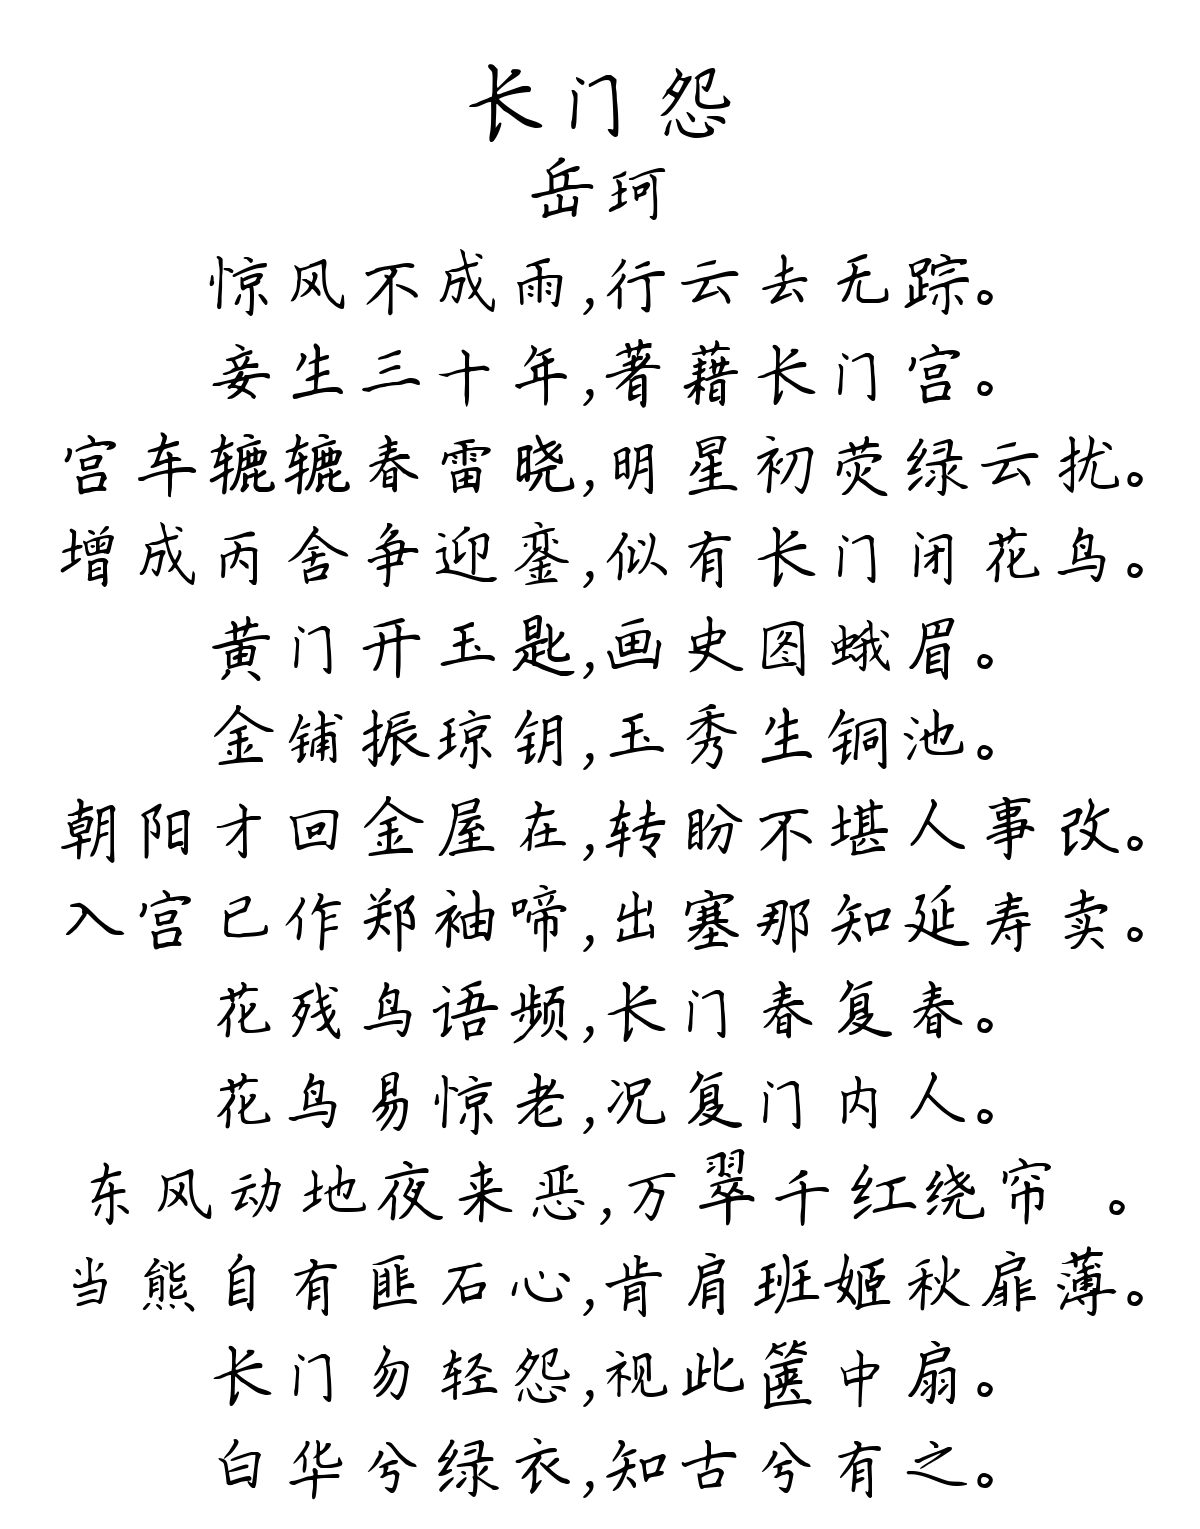 长门怨
岳珂
惊风不成雨,行云去无踪。
妾生三十年,著藉长门宫。
宫车辘辘春雷晓,明星初荧绿云扰。
增成丙舍争迎銮,似有长门闭花鸟。
黄门开玉匙,画史图蛾眉。
金铺振琼钥,玉秀生铜池。
朝阳才回金屋在,转盼不堪人事改。
入宫已作郑袖啼,出塞那知延寿卖。
花残鸟语频,长门春复春。
花鸟易惊老,况复门内人。
东风动地夜来恶,万翠千红绕帘 。
当熊自有匪石心,肯肩班姬秋扉薄。
长门勿轻怨,视此箧中扇。
白华兮绿衣,知古兮有之。